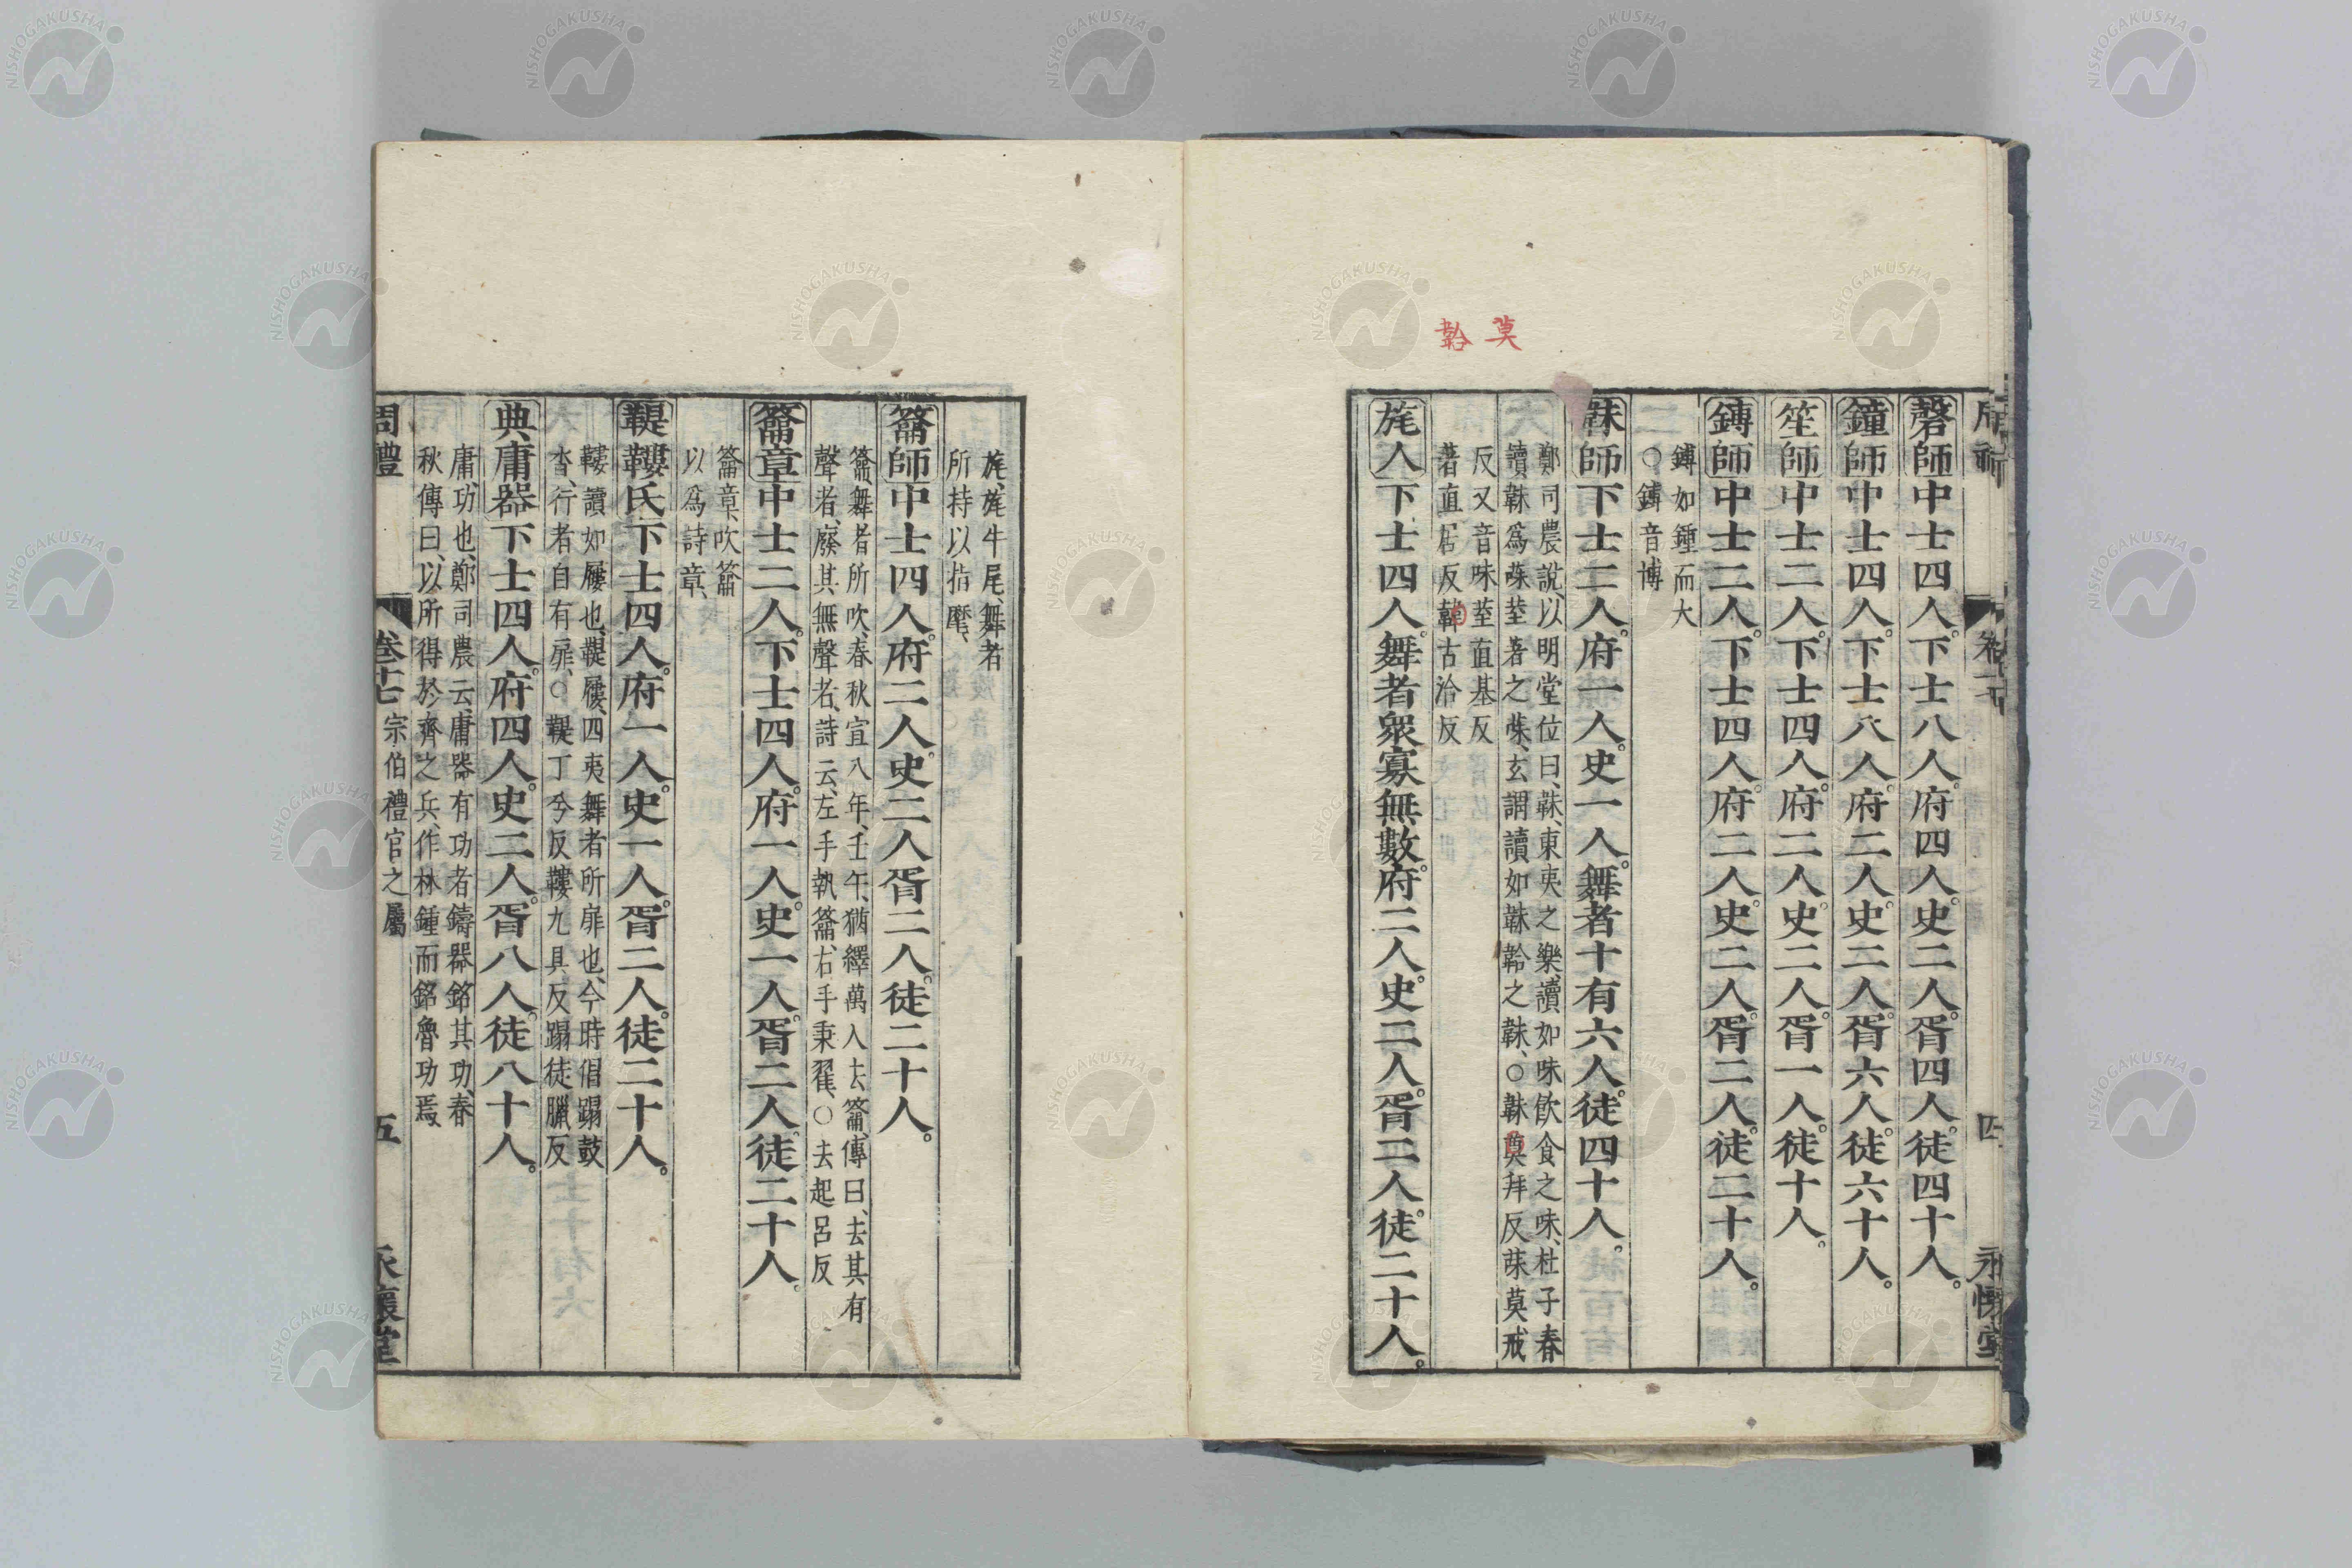 莫
韐
磬師中士四人。下士八人。府四人。史二人。胥四人。徒四十人。
鐘師中士四人。下士八人。府二人。史二人。胥六人。徒六十人。
笙師中士二人。下士四人。府二人。史二人。胥一人。徒十人。
鎛師中士二人。下士四人。府二人。史二人。胥二人。徒二十人。
鎛如鍾而大
○鎛音博
韎師下士二人。府一人。史一人。舞者十有六人。徒四十人。
鄭司農說、以明堂位曰、韎、東夷之樂、讀如味飲食之味、杜子春
讀韎爲菋荎著之菋、玄謂讀如韎韐之韎、○韎莫拜反菋莫戒
反又音味荎直基反
著直居反韐古洽反
旄人下士四人。舞者眾寡無數。府二人。史二人。胥二人。徒二十人。
旄、旄牛尾、舞者
所持以指麾、
籥師中士四人。府二人。史二人。胥二人。徒二十人。
籥、舞者所吹、春秋宣八年、壬午、猶繹萬入去籥、傳曰、去其有
聲者、廢其無聲者、詩云、左手執籥、右手秉翟、○去起呂反
籥章中士二人。下士四人。府一人。史一人。胥二人。徒二十人。
籥章、吹籥
以爲詩章、
鞮鞻氏下士四人。府一人。史一人。胥二人。徒二十人。
鞻讀如屨也、鞮屨、四夷舞者所扉也、今時倡蹋鼓
沓、行者自有扉、○鞮丁兮反鞻九具反蹋徒臘反
典庸器下士四人。府四人。史二人。胥八人。徒八十人。
庸、功也、鄭司農云、庸器有功者鑄器銘其功、春
秋傳曰、以所得於齊之兵、作林鍾而銘魯功焉、
周禮 卷十七 宗伯禮官之屬 五 永懷堂